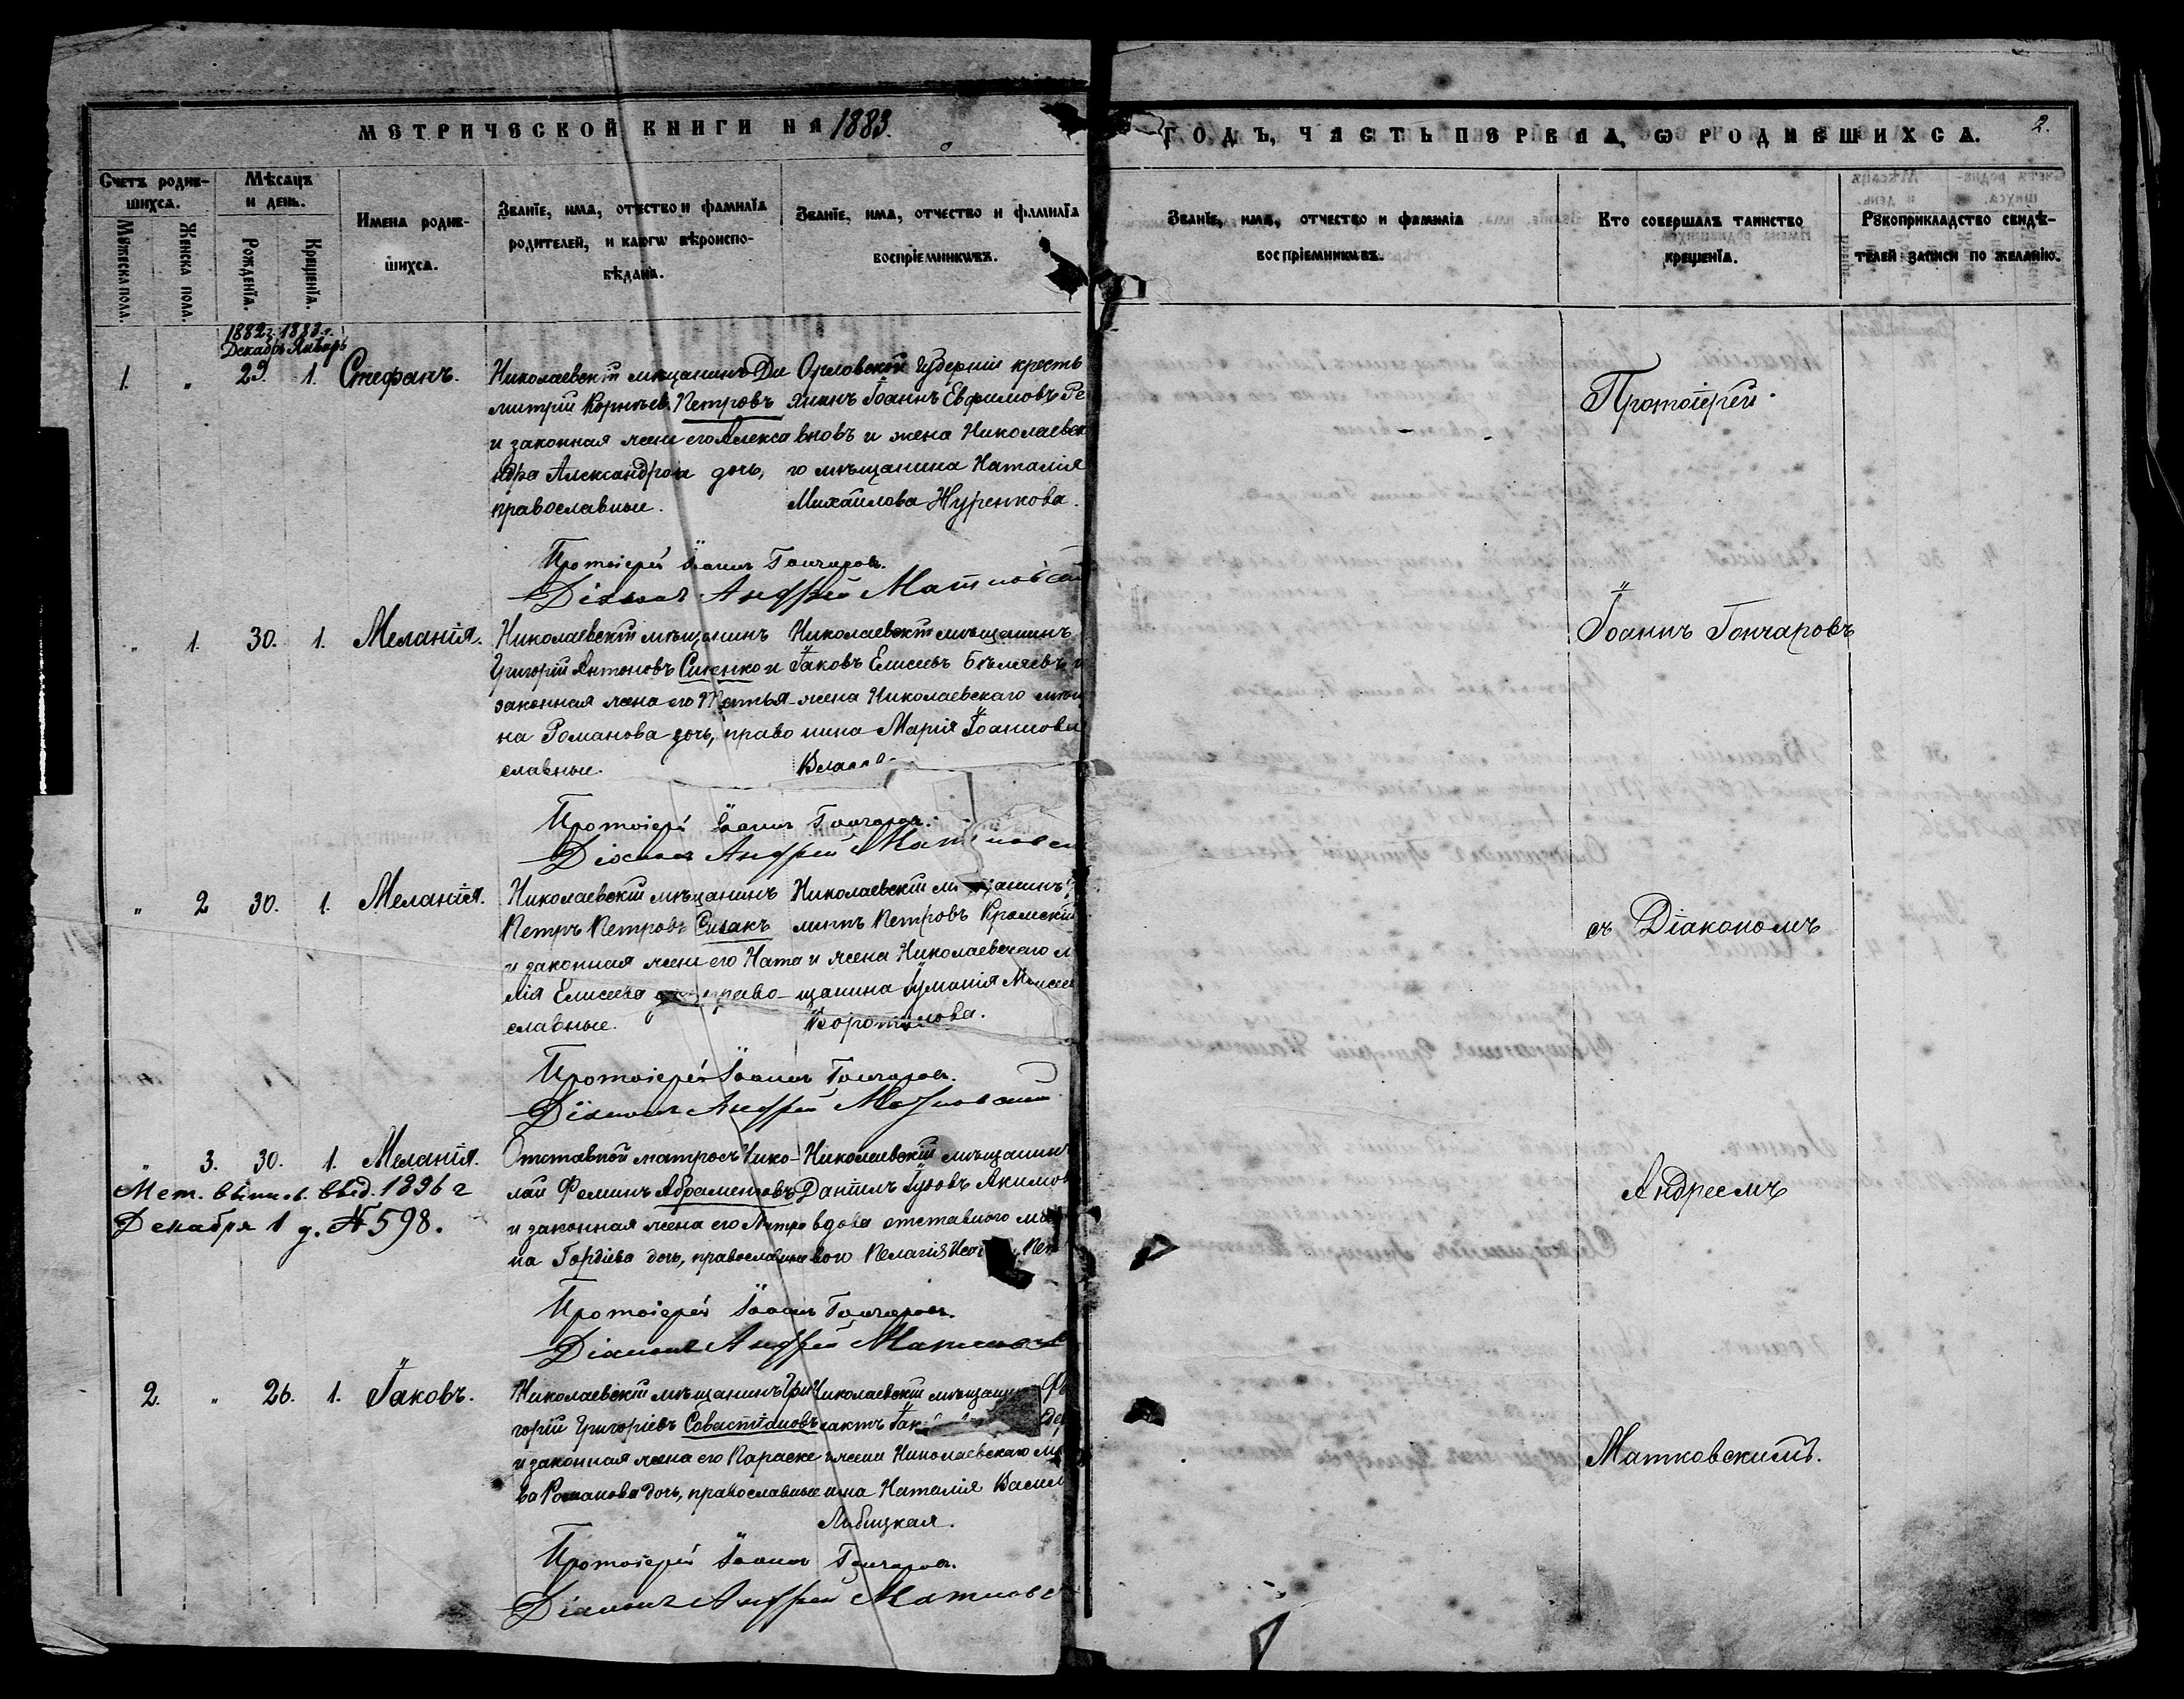 МЕТРИЧЕСКОЙ КНИГИ НА 1883.
ГОДЪ, ЧАСТЬ ПЕРВАЯ, Ѡ РОДИВШИХСѦ. 2.
Счетъ родив-
шихсѧ.
Мѣсѧцъ
и день.
Мꙋжеска пола.
Женска пола.
Рожденїѧ.
Крещенїѧ.
Имена родив-
шихсѧ.
Званїе, имѧ, отчество и фамилїѧ
родителей, и какогѡ вѣроиспо-
вѣданїѧ.
Званїе, имѧ, отчество и фамилїѧ
воспрїемникѡвъ.
Званїе, имѧ, отчество и фамилїѧ
воспрїемникѡвъ.
Кто совершалъ таинство
крещенїѧ.
Рꙋкоприкладство свидѣ-
телей записи по желанїю.
1882 г. 1883 г.
Декабрь Январь
1. " 29. 1. Стефанъ.
Николаевскій мѣщанинъ Ди
митрій Корнѣев. Петровъ
и законная жена его Алекса
ндра Александрова дочь,
православные.
Орловской Губерніи кресть
янинъ Іоаннъ Евфимовъ Ре
вновъ и жена Николаевска
го мѣщанина Наталія
Михайлова Журенкова.
Протоіерей Іоаннъ Гончаровъ.
Діаконъ Андрей Матковскій
" 1. 30. 1. Меланія.
Николаевскій мѣщанинъ
Григорій Антоновъ Сиченко и
законная жена его Татья-
на Романова дочь, право
славные.
Николаевскій мѣщанинъ
Іаковъ Елисеевъ Бѣляевъ и
жена Николаевскаго мѣщ
нина Марія Іоаннова
Протоіерей Іоаннъ Гончаровъ.
Діаконъ Андрей Матковск
" 2 30. 1. Меланія.
Николаевскій мѣщанинъ
Петръ Петровъ Сизакъ
и законная жена его Ната
лія Елисеева право-
славные.
Николаевскій мѣщанинъ
Петровъ Крамскій
и жена Николаевскаго м
щанина Іуманія Моисее
Воротилова.
Протоіерей Іоаннъ Гончаровъ.
Діаконъ Андрей Матковскій
" 3. 30. 1. Меланія.
Мет. выпис. выд. 1896 г
Декабря 1 д. № 598.
Отставной матросъ Нико-
лай Фоминъ Абраменковъ
и законная жена его Матро
на Гордіева дочь, православные
Николаевскій мѣщанинъ
Даніилъ Іововъ Акимов
вдова отставного
Пелагія
Протоіерей Іоаннъ Гончаровъ.
Діаконъ Андрей Матковск
2. " 26. 1. Іаковъ.
Николаевскій мѣщанинъ Гри
горій Григоріевъ Савастіановъ
и законная жена его Параске
ва Романова дочь, православные
Николаевскій мѣщани
и жена Николаевскаго мѣ
нина Наталія Васил
Лабицкая.
Протоіерей Іоаннъ Гончаровъ.
Діаконъ Андрей Матковс
Протоіерей
Іоаннъ Гончаровъ
съ Діакономъ
Андреемъ
Матковскимъ.